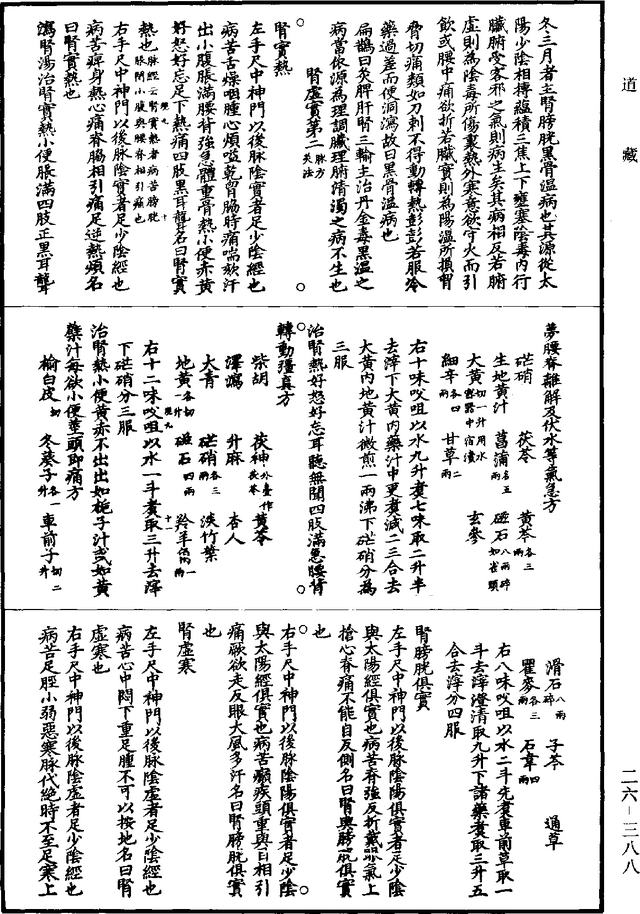 道藏
冬三月者主腎膀胱黑骨溫病也其源從太
陽少陰相搏蘊積三焦上下壅塞陰毒內行
臟腑受客邪之氣則病生矣其病相反若腑
虛則為陰毒所傷裏熱外寒意欲守火而引
飲或腰中痛欲折若臟實則為陽溫所損胷
脅切痛類如刀刺不得動轉熱彭彭若服冷
藥過差而便洞瀉故曰黑骨溫病也
扁鵲曰灸脾肝腎三輸主治丹金毒黑溫之
病當依源為理調臟理腑清濁之病不生也
腎虛實第二脉方灸法
腎實熱
左手尺中神門以後脉陰實者足少陰經也
病苦舌燥咽腫心煩嗌乾胷脇時痛喘欬汗
出小腹脹滿腰背強急體重骨熱小便赤黃
好怒好忘足下熱痛四肢黑耳聾名曰腎實
熱也脉經云腎實熱者病苦膀胱脹閉小腹與腰脊相引痛也
右手尺中神門以後脉陰實者足少陰經也
病苦痺身熱心痛脊脇相引痛足逆熱煩名
曰腎實熱也
瀉腎湯治腎實熱小便脹滿四肢正黑耳聾
夢腰脊離解及伏水等氣急方
芒硝 茯苓 黃芩各三兩
生地黃汁 菖蒲各五兩 磁石八兩碎如雀頭
大黃切一升用水密器中宿漬 玄參
細辛各四兩 甘草二兩
右十味㕮咀以水九升煑七味取二升半
去滓下大黃內藥汁中更煑減二三合去
大黃內地黃汁微煎一兩沸下芒硝分為
三服
治腎熱好怒好忘耳聽無聞四肢滿急腰背
轉動彊真方
柴胡 茯神外臺作茯苓 黃芩
澤瀉 升麻 杏人
大青 芒硝各三兩 淡竹葉
地黃各切一升 磁石四兩 羚羊角一兩
右十二味㕮咀以水一斗煑取三升去滓
下芒硝分三服
治腎熱小便黃赤不出出如梔子汁或如黃
蘗汁每欲小便莖頭即痛方
榆白皮切一升 冬葵子各一升 車前子切二升
滑石八兩碎 子芩 通草
瞿麥各三兩 石韋四兩
右八味㕮咀以水二斗先煑車前草取一
斗去滓澄清取九升下諸藥煑取三升五
合去滓分四服
腎膀胱俱實
左手尺中神門以後脉陰陽俱實者足少陰
與太陽經俱實也病苦脊強反折戴眼氣上
搶心脊痛不能自反側名曰腎與膀胱俱實
也
右手尺中神門以後脉陰陽俱實者足少陰
與太陽經俱實也病苦癲疾頭重與目相引
痛厥欲走反眼大風多汗名曰腎膀胱俱實
也
腎虛寒
左手尺中神門以後脉陰虛者足少陰經也
病苦心中悶下重足腫不可以按地名曰腎
虛寒也
右手尺中神門以後脉陰虛者足少陰經也
病苦足脛小弱惡寒脉代絕時不至足寒上
二六-三八八